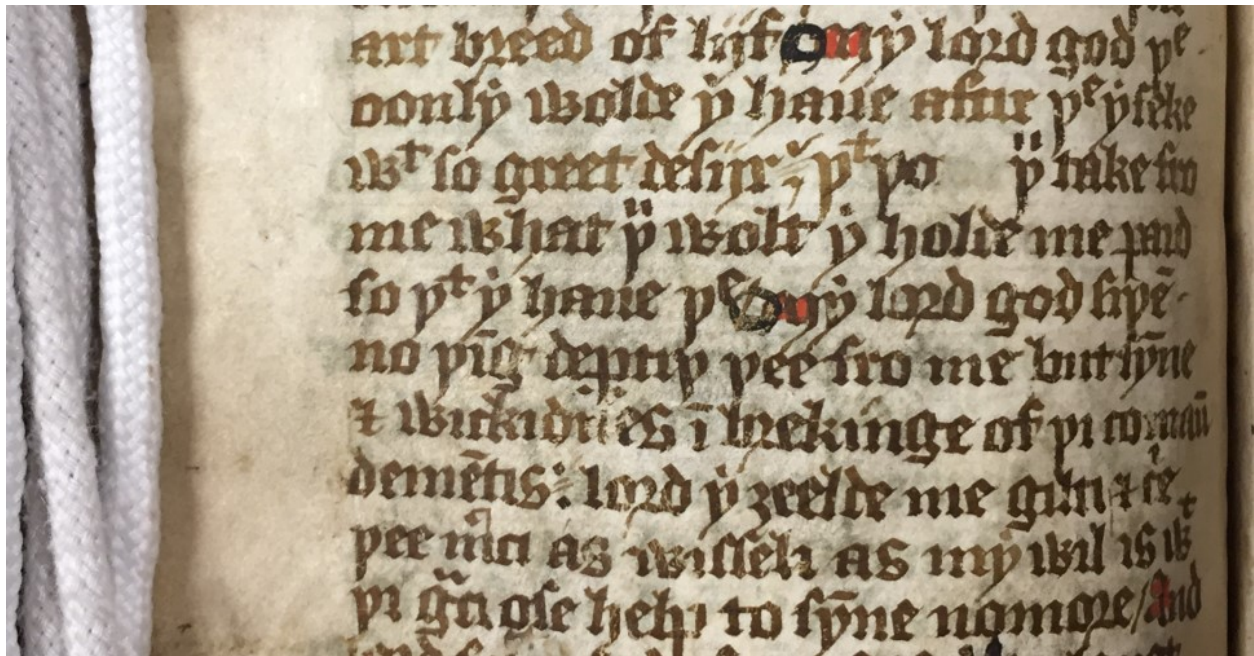 art breed of lijf O my lord god þᵉ
oonly wolde ẏ haue aftir þᵉ ẏ seke
wᵗ so greet desijr þᵗ þo ẏ take fro
me what ẏ wolt ẏ holde me paid
so þᵗ ẏ haue þᵉ O my lord god
no þīg deptiþ þee fro me but sȳne
⁊ wickidnes ī brekinge of þi comaū
demētis lord ẏ ȝeelde me gilti ⁊
þee m̄ci as wisseli as mẏ wil is wᵗ
þi to sȳne nomore / And